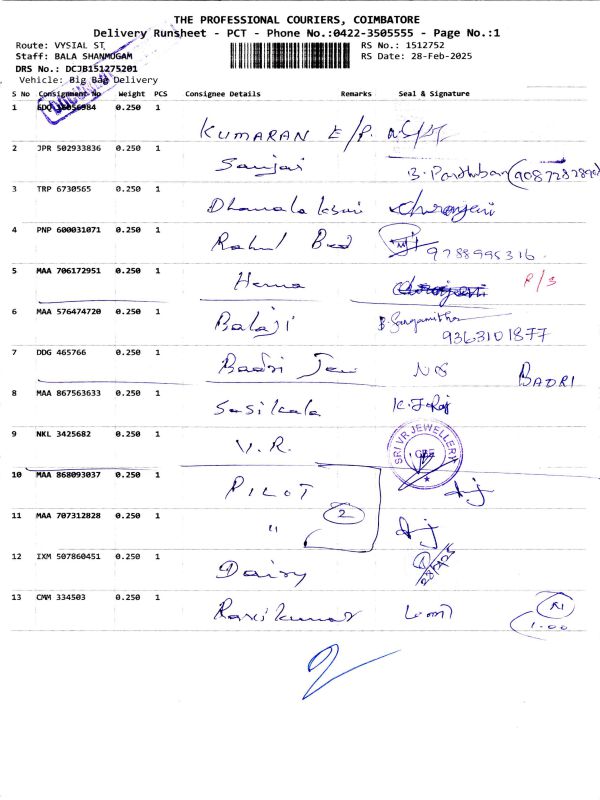 THE PROFESSIONAL COURIERS, COIMBATORE
Delivery Runsheet - PCT - Phone No.:0422-3505555 - Page No.:1
Route: VYSIAL ST
RS No.: 1512752
Staff: BALA SHANMUGAM
RS Date: 28-Feb-2025
DRS No.: DCJB151275201
Vehicle: Big Bag Delivery
S No Consignment No Weight PCS Consignee Details Remarks Seal & Signature
1 0.250 1
KUMARAN E/P.
2 JPR 502933836 0.250 1
Sanjai
3 TRP 6730565 0.250 1
Dhanalakshmi Chiranjeevi
4 PNP 600031071 0.250 1
Rahul 9788995316
5 MAA 706172951 0.250 1
Hema
6 MAA 576474720 0.250 1
Balaji
9363101877
7 DDG 465766 0.250 1
Badri BADRI
8 MAA 867563633 0.250 1
Sasikala
9 NKL 3425682 0.250 1
V.R. SRI VR JEWELLERY CBE
10 MAA 868093037 0.250 1
PILOT
11 MAA 707312828 0.250 1
" 2
12 IXM 507860451 0.250 1
Daisy
13 CMM 334503 0.250 1
Ravikumar
1.00